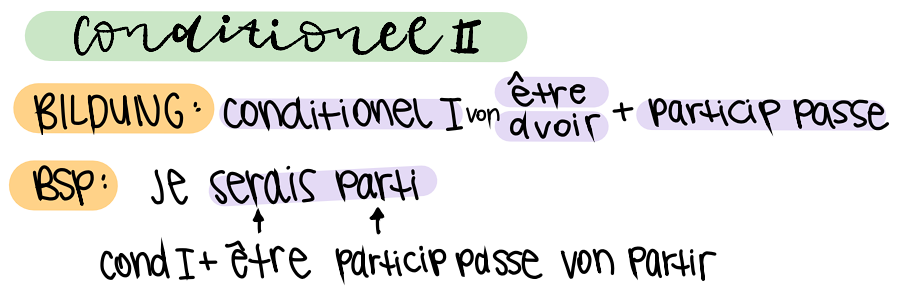 conditionell II
BILDUNG: conditionel I von être avoir + particip passe
BSP: je serais parti
cond I + être particip passe von partir